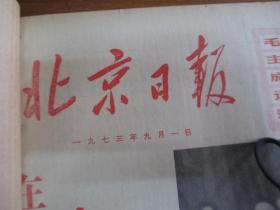 北京日報
一九七三年九月一日
毛主
在